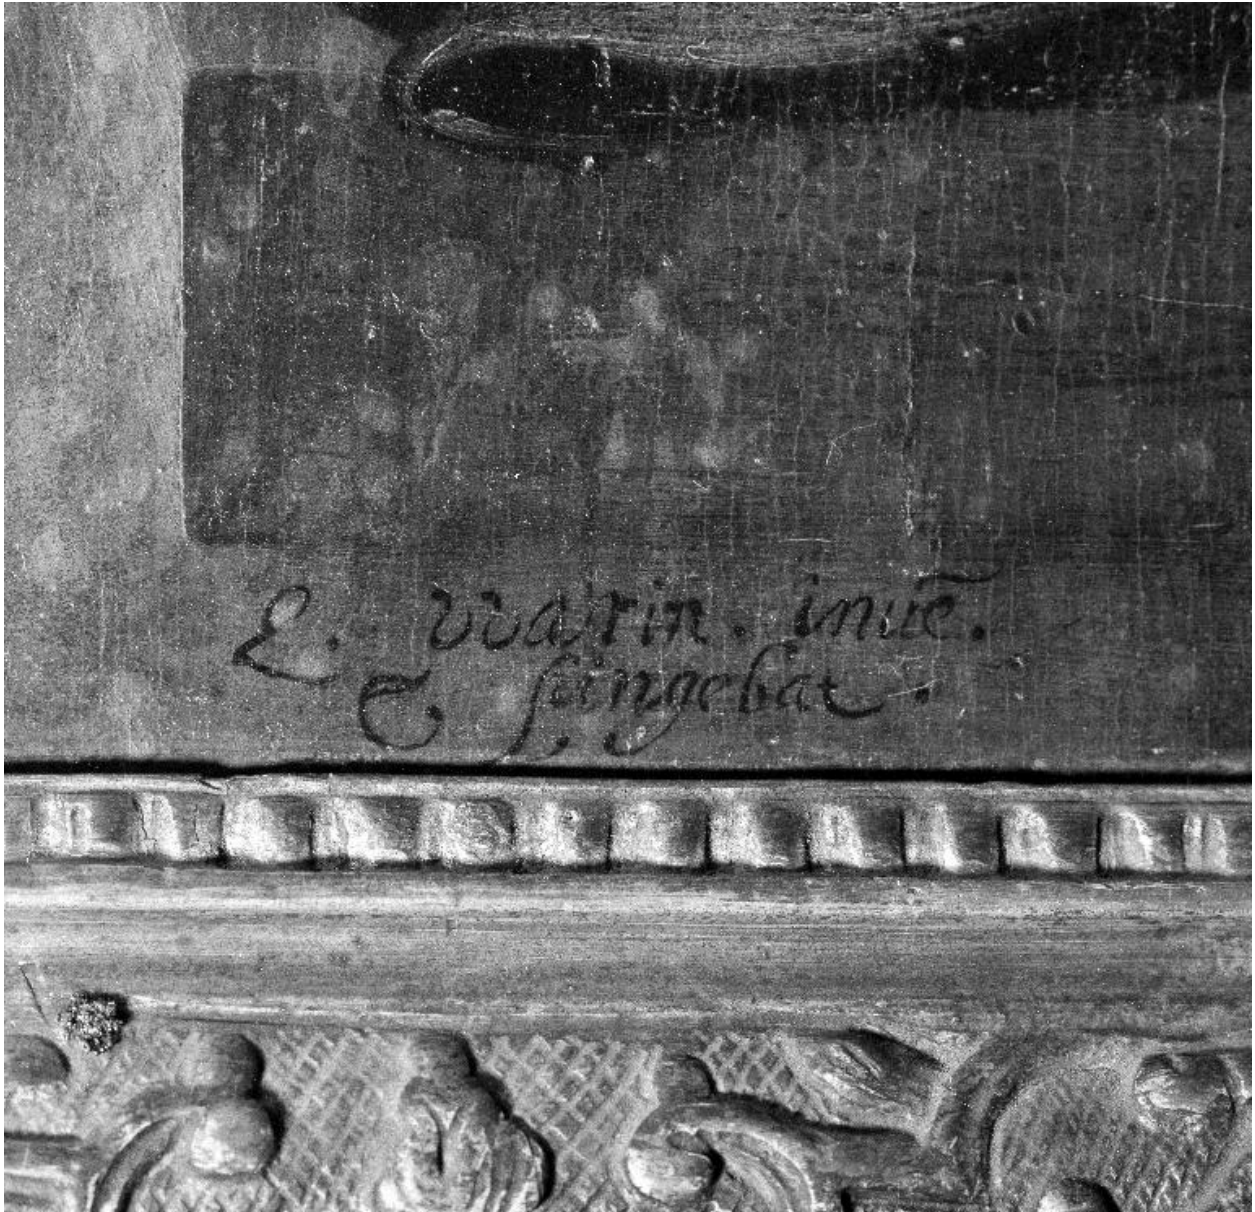 Q. vvarin. inuē.
& pingebat.